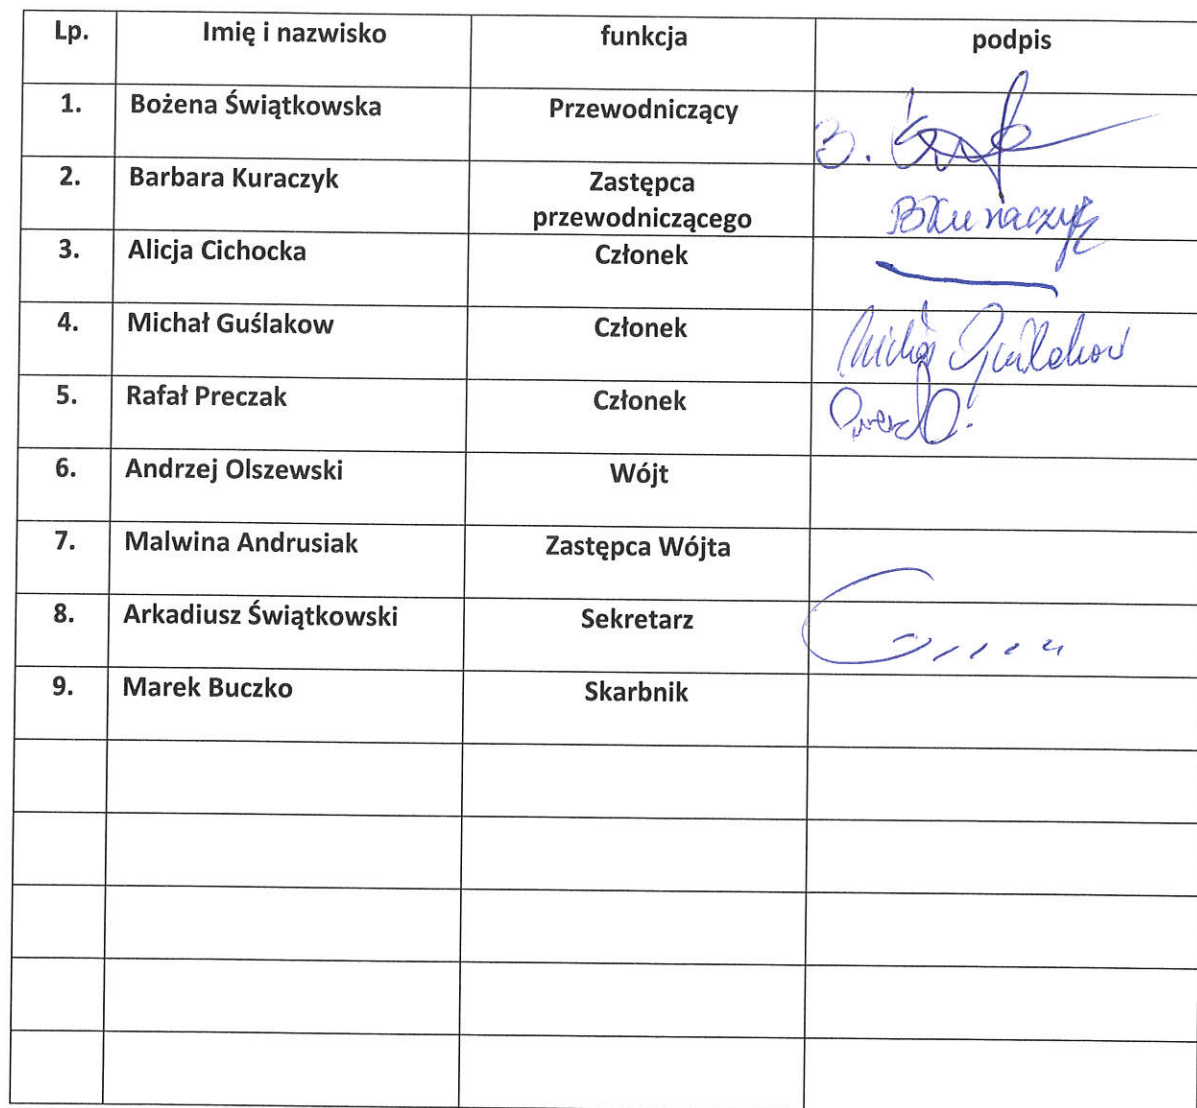 Lp. Imię i nazwisko funkcja podpis
1. Bożena Świątkowska Przewodniczący B.
2. Barbara Kuraczyk Zastępca
przewodniczącego BKuraczyk
3. Alicja Cichocka Członek
4. Michał Guślakow Członek Michał Guślakow
5. Rafał Preczak Członek
6. Andrzej Olszewski Wójt
7. Malwina Andrusiak Zastępca Wójta
8. Arkadiusz Świątkowski Sekretarz
9. Marek Buczko Skarbnik